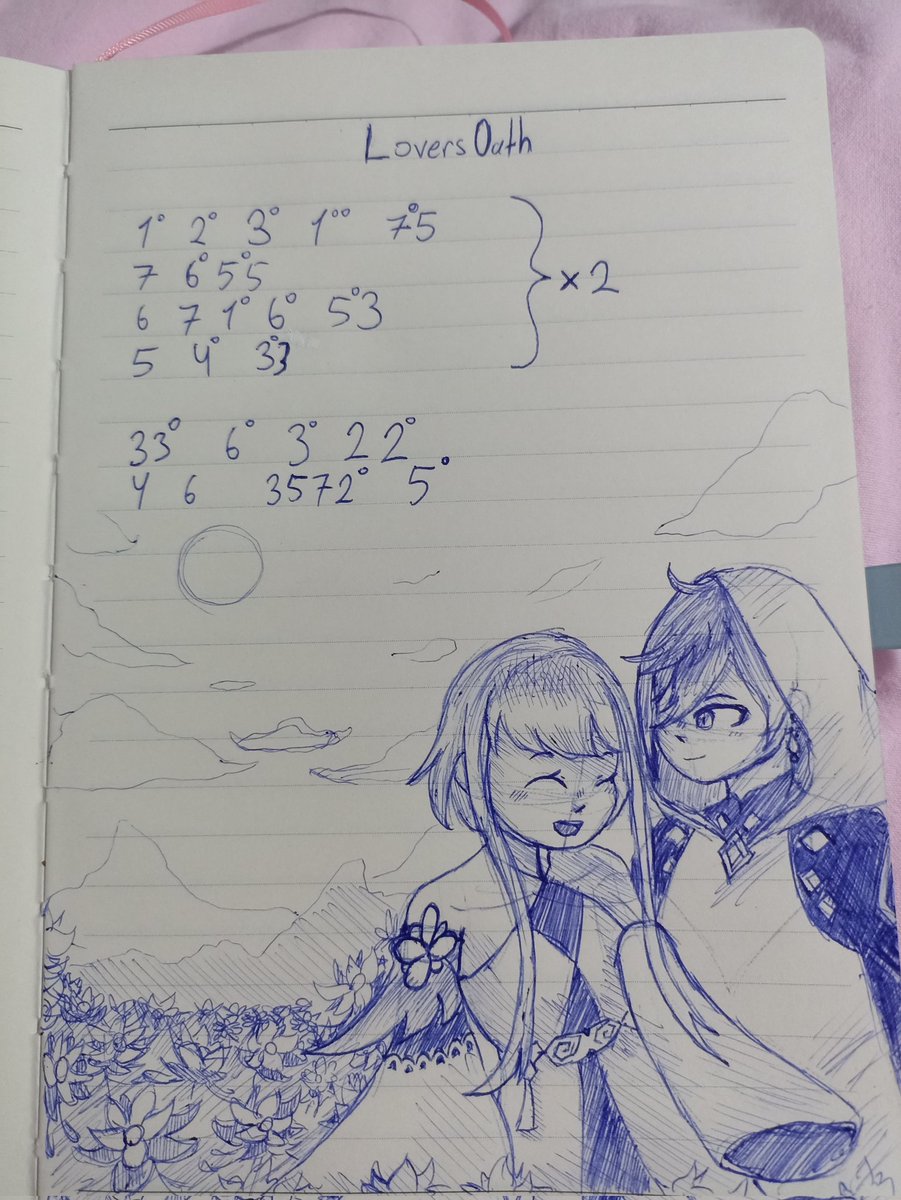 Lovers Oath
1° 2° 3° 1°° 7°5
7 6° 5°5
6 7 1° 6° 5°3
5 4° 3°3
× 2
33° 6° 3° 2 2°
4 6 3572° 5°